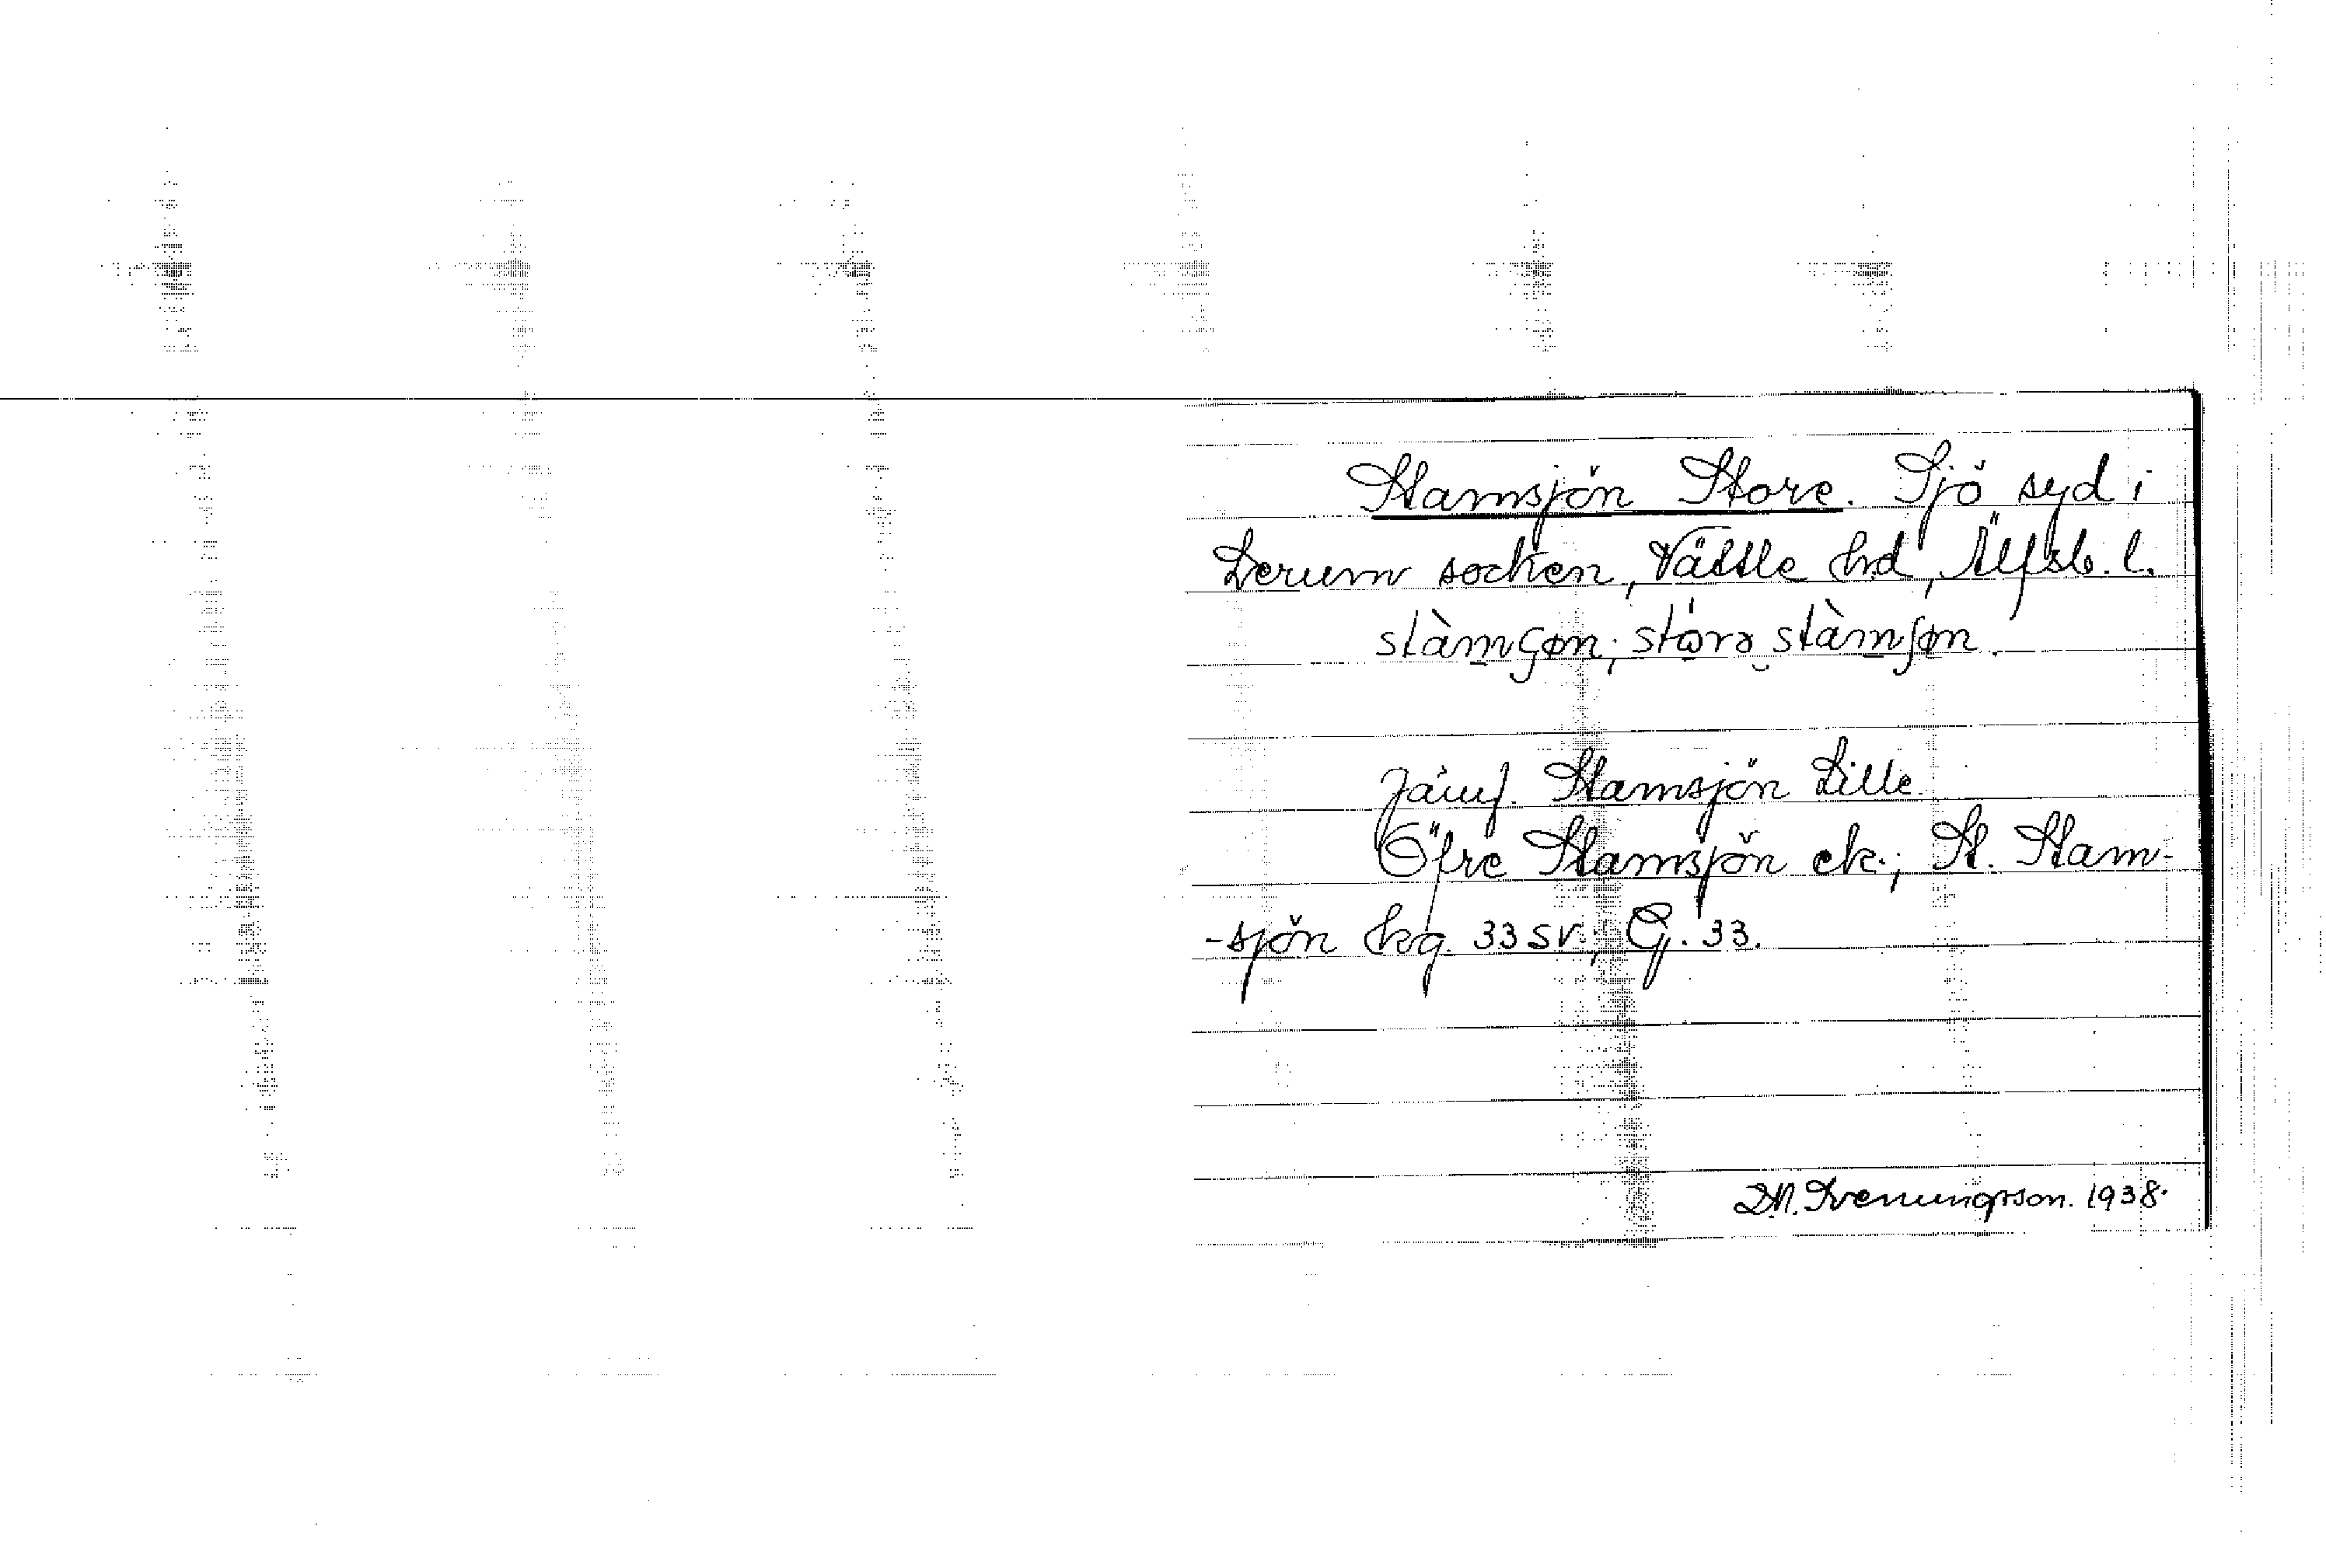 Stamsjön Store. Sjö syd i
Lerum socken, Vättle hd, Älfsb. l.
stàmʂøn; stórə stàmʃøn.
Jämf. Stamsjön Lille.
Öfre Stamsjön ek.; St. Stam-
-sjön hg. 33 SV.; G. 33.
D.N. Svenungsson. 1938.